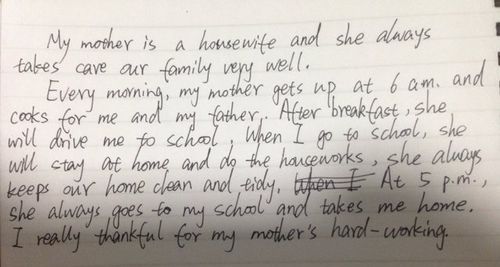 My mother is a housewife and she always
takes care our family very well.
Every morning, my mother gets up at 6 a.m. and
cooks for me and my father. After breakfast, she
will drive me to school, When I go to school, she
will stay at home and do the houseworks, she always
keeps our home clean and tidy, When I At 5 p.m.,
she always goes to my school and takes me home.
I really thankful for my mother's hard-working.